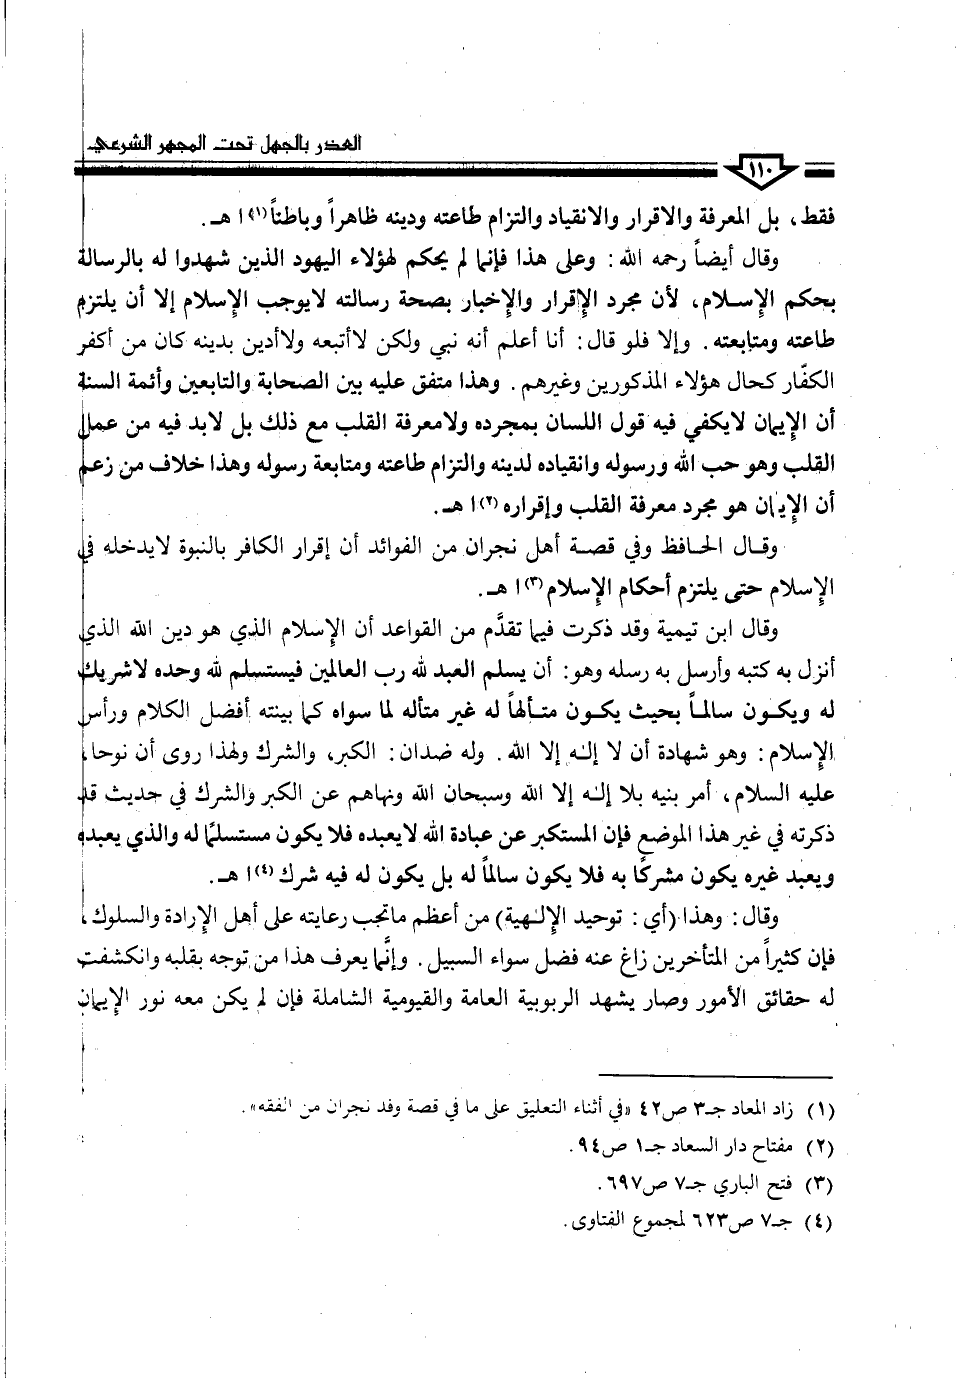 العذر بالجهل تحت المجهر الشرعي
١١٠
فقط، بل المعرفة والاقرار والانقياد والتزام طاعته ودينه ظاهراً وباطناً(١) ا هـ.
وقال أيضاً رحمه الله: وعلى هذا فإنما لم يحكم لهؤلاء اليهود الذين شهدوا له بالرسالة
بحكم الإسلام، لأن مجرد الإقرار والإخبار بصحة رسالته لايوجب الإسلام إلا أن يلتزم
طاعته ومتابعته. وإلا فلو قال: أنا أعلم أنه نبي ولكن لاأتبعه ولاأدين بدينه كان من أكفر
الكفّار كحال هؤلاء المذكورين وغيرهم. وهذا متفق عليه بين الصحابة والتابعين وأئمة السنة
أن الإيمان لايكفي فيه قول اللسان بمجرده ولامعرفة القلب مع ذلك بل لابد فيه من عمل
القلب وهو حب الله ورسوله وانقياده لدينه والتزام طاعته ومتابعة رسوله وهذا خلاف من زعم
أن الإيمان هو مجرد معرفة القلب وإقراره(٢) ا هـ.
وقال الحافظ وفي قصة أهل نجران من الفوائد أن إقرار الكافر بالنبوة لايدخله في
الإسلام حتى يلتزم أحكام الإسلام(٣) ا هـ.
وقال ابن تيمية وقد ذكرت فيما تقدَّم من القواعد أن الإسلام الذي هو دين الله الذي
أنزل به كتبه وأرسل به رسله وهو: أن يسلم العبد لله رب العالمين فيستسلم لله وحده لاشريك
له ويكون سالماً بحيث يكون متألهاً له غير متأله لما سواه كما بينته أفضل الكلام ورأس
الإسلام: وهو شهادة أن لا إله إلا الله. وله ضدان: الكبر، والشرك ولهذا روى أن نوحا،
عليه السلام، أمر بنيه بلا إله إلا الله وسبحان الله ونهاهم عن الكبر والشرك في حديث قد
ذكرته في غير هذا الموضع فإن المستكبر عن عبادة الله لايعبده فلا يكون مستسلمًا له والذي يعبده
ويعبد غيره يكون مشركًا به فلا يكون سالماً له بل يكون له فيه شرك(٤) ا هـ.
وقال: وهذا (أي: توحيد الإلهية) من أعظم ماتجب رعايته على أهل الإرادة والسلوك،
فإن كثيراً من المتأخرين زاغ عنه فضل سواء السبيل. وإنَّما يعرف هذا من توجه بقلبه وانكشفت
له حقائق الأمور وصار يشهد الربوبية العامة والقيومية الشاملة فإن لم يكن معه نور الإيمان
(١) زاد المعاد جـ٣ ص٤٢ «في أثناء التعليق على ما في قصة وفد نجران من الفقه».
(٢) مفتاح دار السعاد جـ١ ص٩٤.
(٣) فتح الباري جـ٧ ص٦٩٧.
(٤) جـ٧ ص٦٢٣ لمجموع الفتاوى.